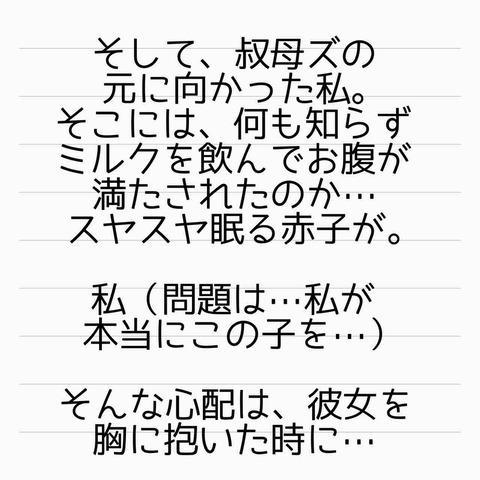 そして、叔母ズの
元に向かった私。
そこには、何も知らず
ミルクを飲んでお腹が
満たされたのか…
スヤスヤ眠る赤子が。
私（問題は…私が
本当にこの子を…）
そんな心配は、彼女を
胸に抱いた時に…